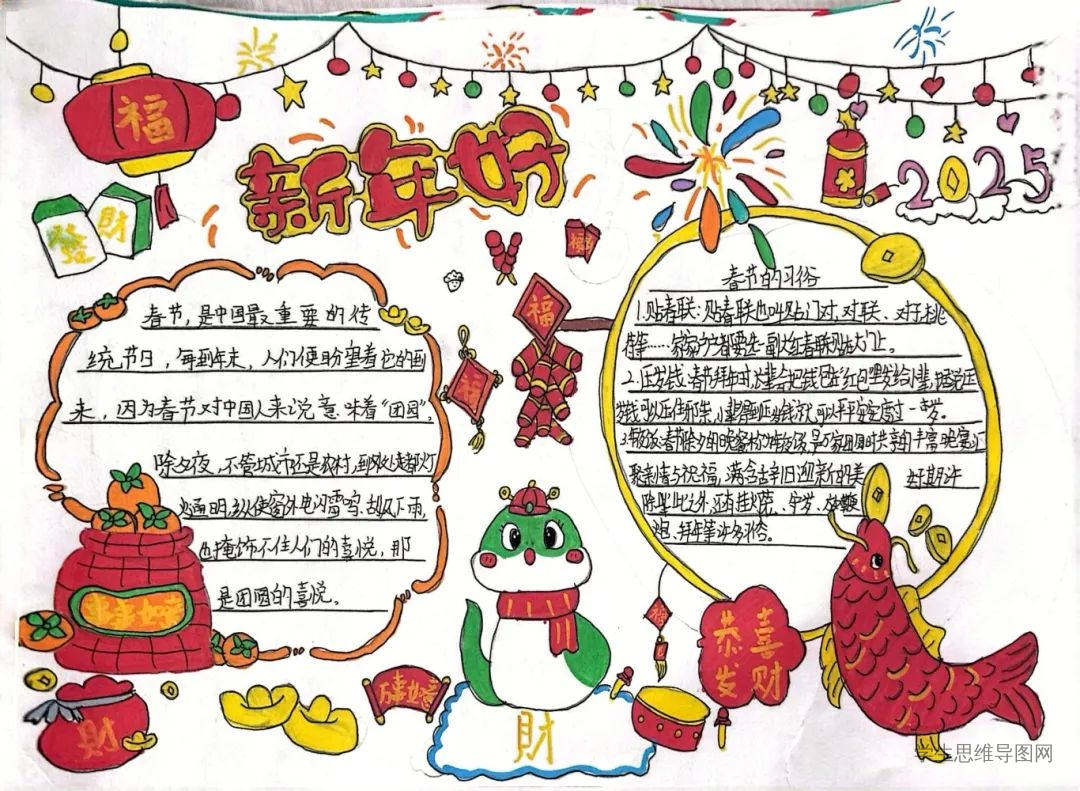 福
新年好
2025
發
財
福
福
福
春节,是中国最重要的传
统节日,每到年末,人们便盼望着它的到
来,因为春节对中国人来说意味着“团圆”,
除夕夜,不管城市还是农村,到处都灯
火通明,纵使窗外电闪雷鸣,刮风下雨,
也掩饰不住人们的喜悦,那
是团圆的喜悦。
春节的习俗
1.贴春联:贴春联也叫贴门对,对联、对子,桃
符等……家家户户都要选一副大红春联贴在大门上。
2.压岁钱:春节拜年时,长辈会把钱包在红包里发给小辈,据说压
岁钱可以压住邪祟,小辈得到压岁钱就可以平平安安度过一岁。
3.年夜饭:春节除夕的晚餐称作年夜饭,是万家团圆时共享的丰富晚宴,
聚亲情与祝福,满含古辞旧迎新的美 好期许
除此之外,还有挂灯笼、守岁、放鞭
炮、拜年等许多习俗。
事如意
財
万事如意
財
恭喜
发财
学生思维导图网